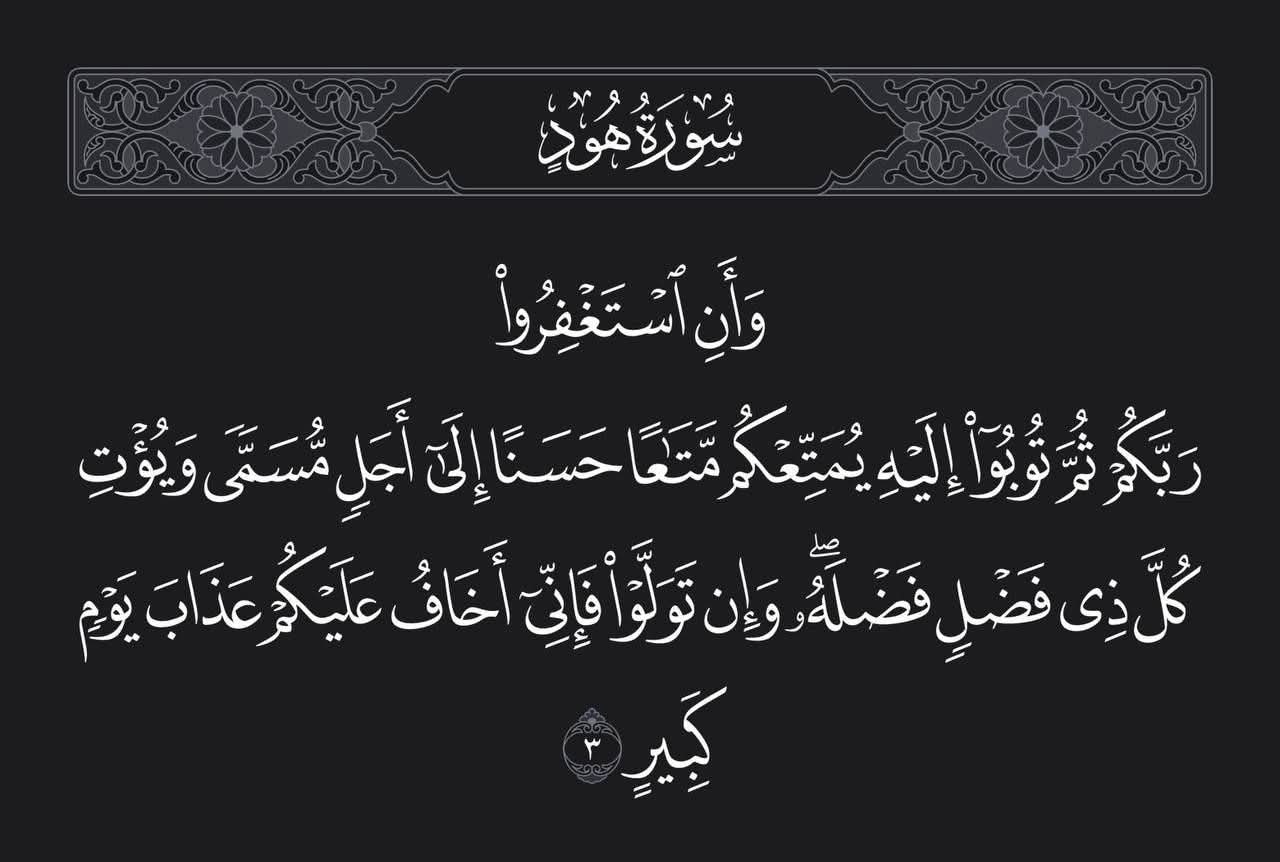 سُورَةُ هُودٍ
وَأَنِ ٱسْتَغْفِرُوا۟
رَبَّكُمْ ثُمَّ تُوبُوٓا۟ إِلَيْهِ يُمَتِّعْكُم مَّتَـٰعًا حَسَنًا إِلَىٰٓ أَجَلٍ مُّسَمًّى وَيُؤْتِ
كُلَّ ذِى فَضْلٍ فَضْلَهُۥ ۖ وَإِن تَوَلَّوْا۟ فَإِنِّىٓ أَخَافُ عَلَيْكُمْ عَذَابَ يَوْمٍ
كَبِيرٍ ٣